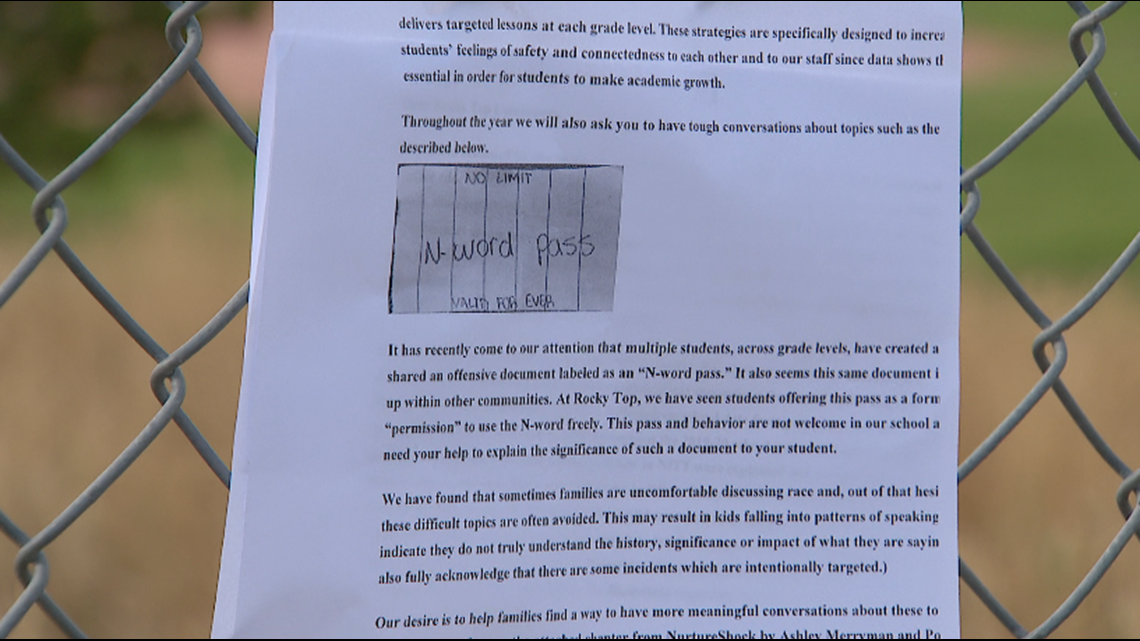 delivers targeted lessons at each grade level. These strategies are specifically designed to increa
students' feelings of safety and connectedness to each other and to our staff since data shows th
essential in order for students to make academic growth.
Throughout the year we will also ask you to have tough conversations about topics such as the
described below.
NO LIMIT
N-word pass
VALID FOR EVER
It has recently come to our attention that multiple students, across grade levels, have created a
shared an offensive document labeled as an “N-word pass.” It also seems this same document i
up within other communities. At Rocky Top, we have seen students offering this pass as a form
“permission” to use the N-word freely. This pass and behavior are not welcome in our school a
need your help to explain the significance of such a document to your student.
We have found that sometimes families are uncomfortable discussing race and, out of that hesi
these difficult topics are often avoided. This may result in kids falling into patterns of speaking
indicate they do not truly understand the history, significance or impact of what they are sayin
also fully acknowledge that there are some incidents which are intentionally targeted.)
Our desire is to help families find a way to have more meaningful conversations about these to
chapter from NurtureShock by Ashley Merryman and Po